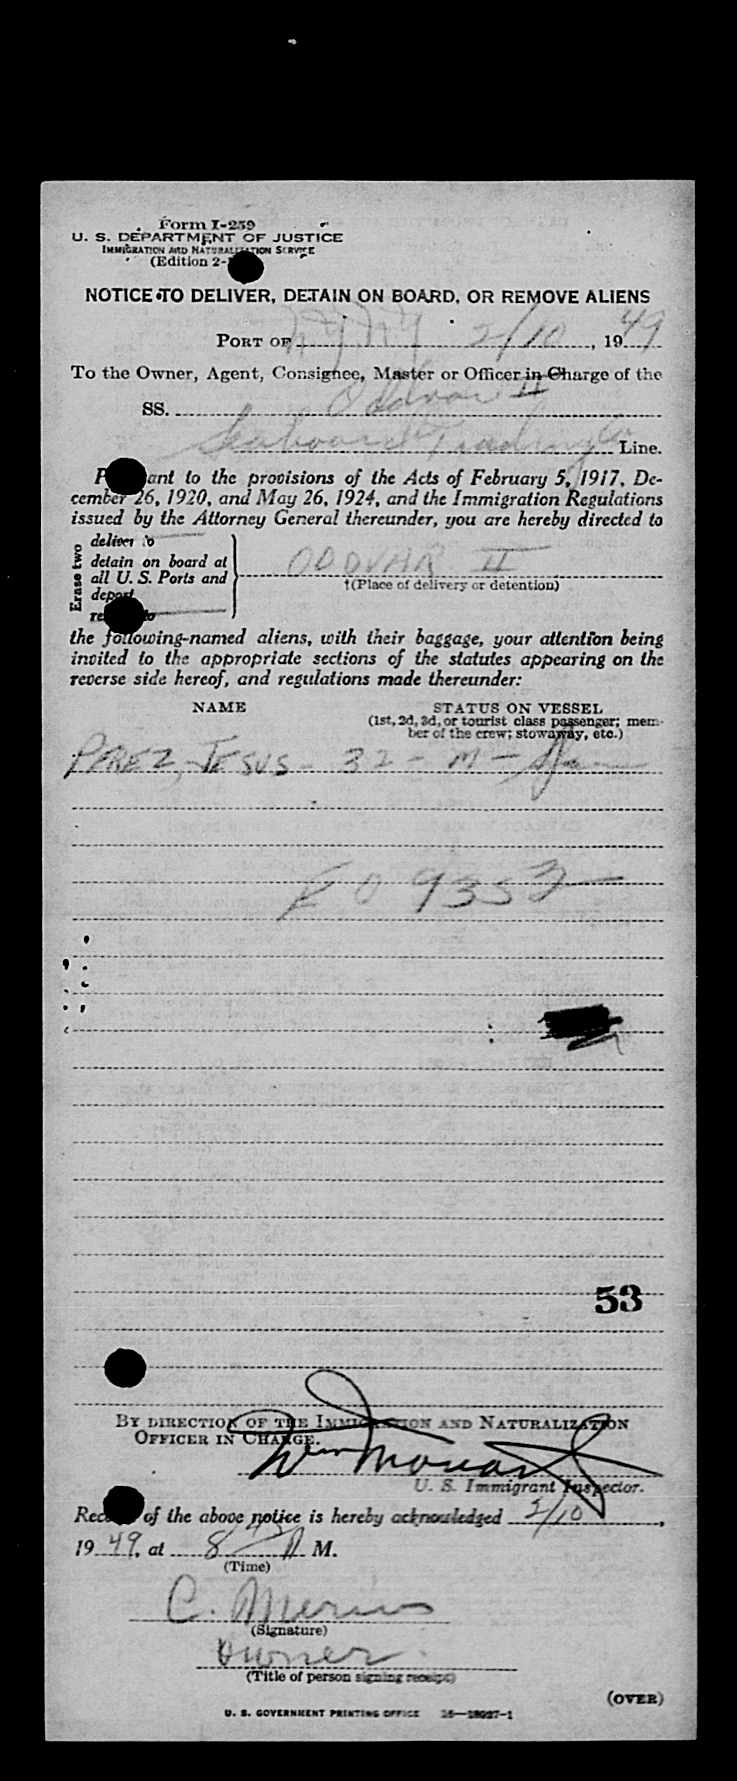 Form I-259
U. S. DEPARTMENT OF JUSTICE
IMMIGRATION AND NATURALIZATION SERVICE
(Edition 2-
NOTICE TO DELIVER, DETAIN ON BOARD, OR REMOVE ALIENS
PORT OF N.Y. N.Y. 2/10, 1949
To the Owner, Agent, Consignee, Master or Officer in Charge of the
SS. Oddvar II
Seaboard Trading Co Line.
P ant to the provisions of the Acts of February 5, 1917, De-
cember 26, 1920, and May 26, 1924, and the Immigration Regulations
issued by the Attorney General thereunder, you are hereby directed to
Erase two
deliver to
detain on board at
all U. S. Ports and
deport
re to
ODDVAR II
†(Place of delivery or detention)
the following-named aliens, with their baggage, your attention being
invited to the appropriate sections of the statutes appearing on the
reverse side hereof, and regulations made thereunder:
NAME STATUS ON VESSEL
(1st, 2d, 3d, or tourist class passenger; mem-
ber of the crew; stowaway, etc.)
PEREZ, JESUS - 32 - M -
9352
53
BY DIRECTION OF THE IMMIGRATION AND NATURALIZATION
OFFICER IN CHARGE.
U. S. Immigrant Inspector.
Rec of the above notice is hereby acknowledged 2/10,
1949, at 8 45 A M.
(Time)
C.
(Signature)
Owner
(Title of person signing receipt)
(OVER)
U. S. GOVERNMENT PRINTING OFFICE 16—18027-1